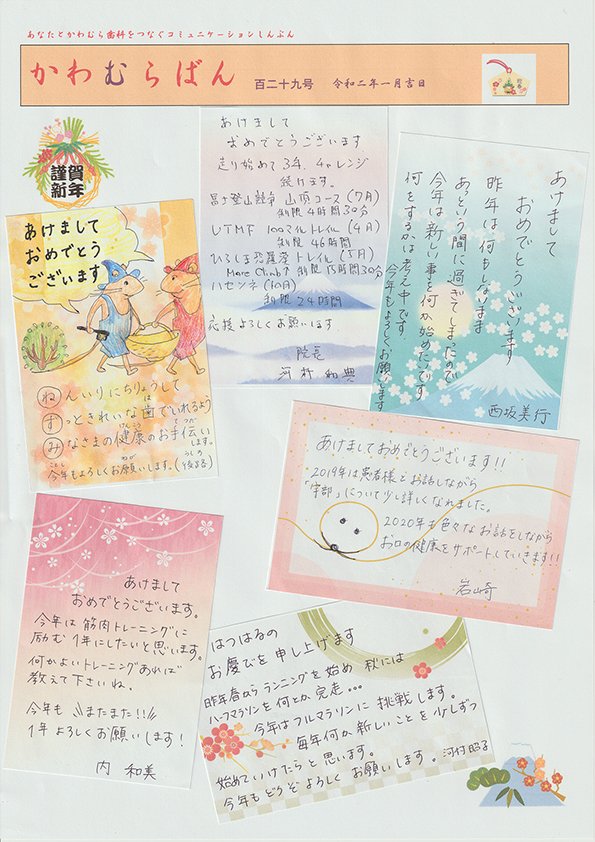 あなたとかわむら歯科をつなぐコミュニケーションしんぶん
かわむらばん
百二十九号
令和二年一月吉日
謹賀
新年
あけまして
おめでとうございます
走り始めて3年、チャレンジ
続けます。
富士登山競争 山頂コース(7月)
制限4時間30分
UTMF 100マイルトレイル(4月)
制限46時間
ひろしま恐羅漢トレイル(5月)
制限15時間30分
ハセツネ(10月)
制限24時間
応援よろしくお願いします。
院長
河村 和典
あけまして
おめでとうございます
昨年は何もしないまま
あっという間に過ぎてしまったので
今年は新しい事を何か始めたいです
何をするかは考え中です。
今年もよろしくお願いします
西坂美行
あけまして
おめでとう
ございます
ねんいりにちりょうして
ずっときれいな歯でいれるよう
みなさまの健康のお手伝い
します。
今年もよろしくお願いします。
あけましておめでとうございます!!
2019年は患者様とお話しながら
「宇部」について少し詳しくなれました。
2020年も色々なお話をしながら
お口の健康をサポートしていきます!!
岩崎
あけまして
おめでとうございます。
今年は筋肉トレーニングに
励む1年にしたいと思います。
何かよいトレーニングあれば
教えて下さいね。
今年も またまた!!
1年よろしくお願いします!
内 和美
はつはるの
お慶びを申し上げます
昨年春からランニングを始め 秋には
ハーフマラソンを何とか完走...
今年はフルマラソンに挑戦します。
毎年何か新しいことを少しずつ
始めていけたらと思います。
今年もどうぞよろしくお願いします。河村昭子